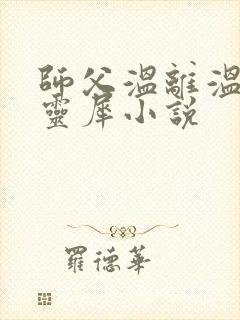 師父溫離溫
靈犀小說
羅德華